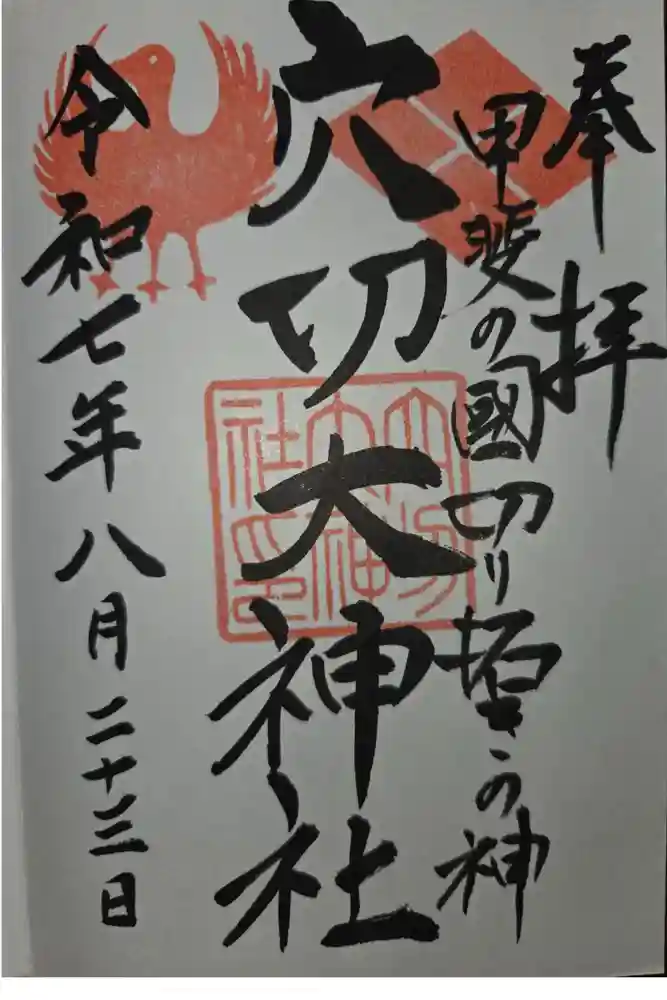 奉拝
甲斐の國切り拓きの神
穴切大神社
穴切大神社印
令和七年八月二十三日